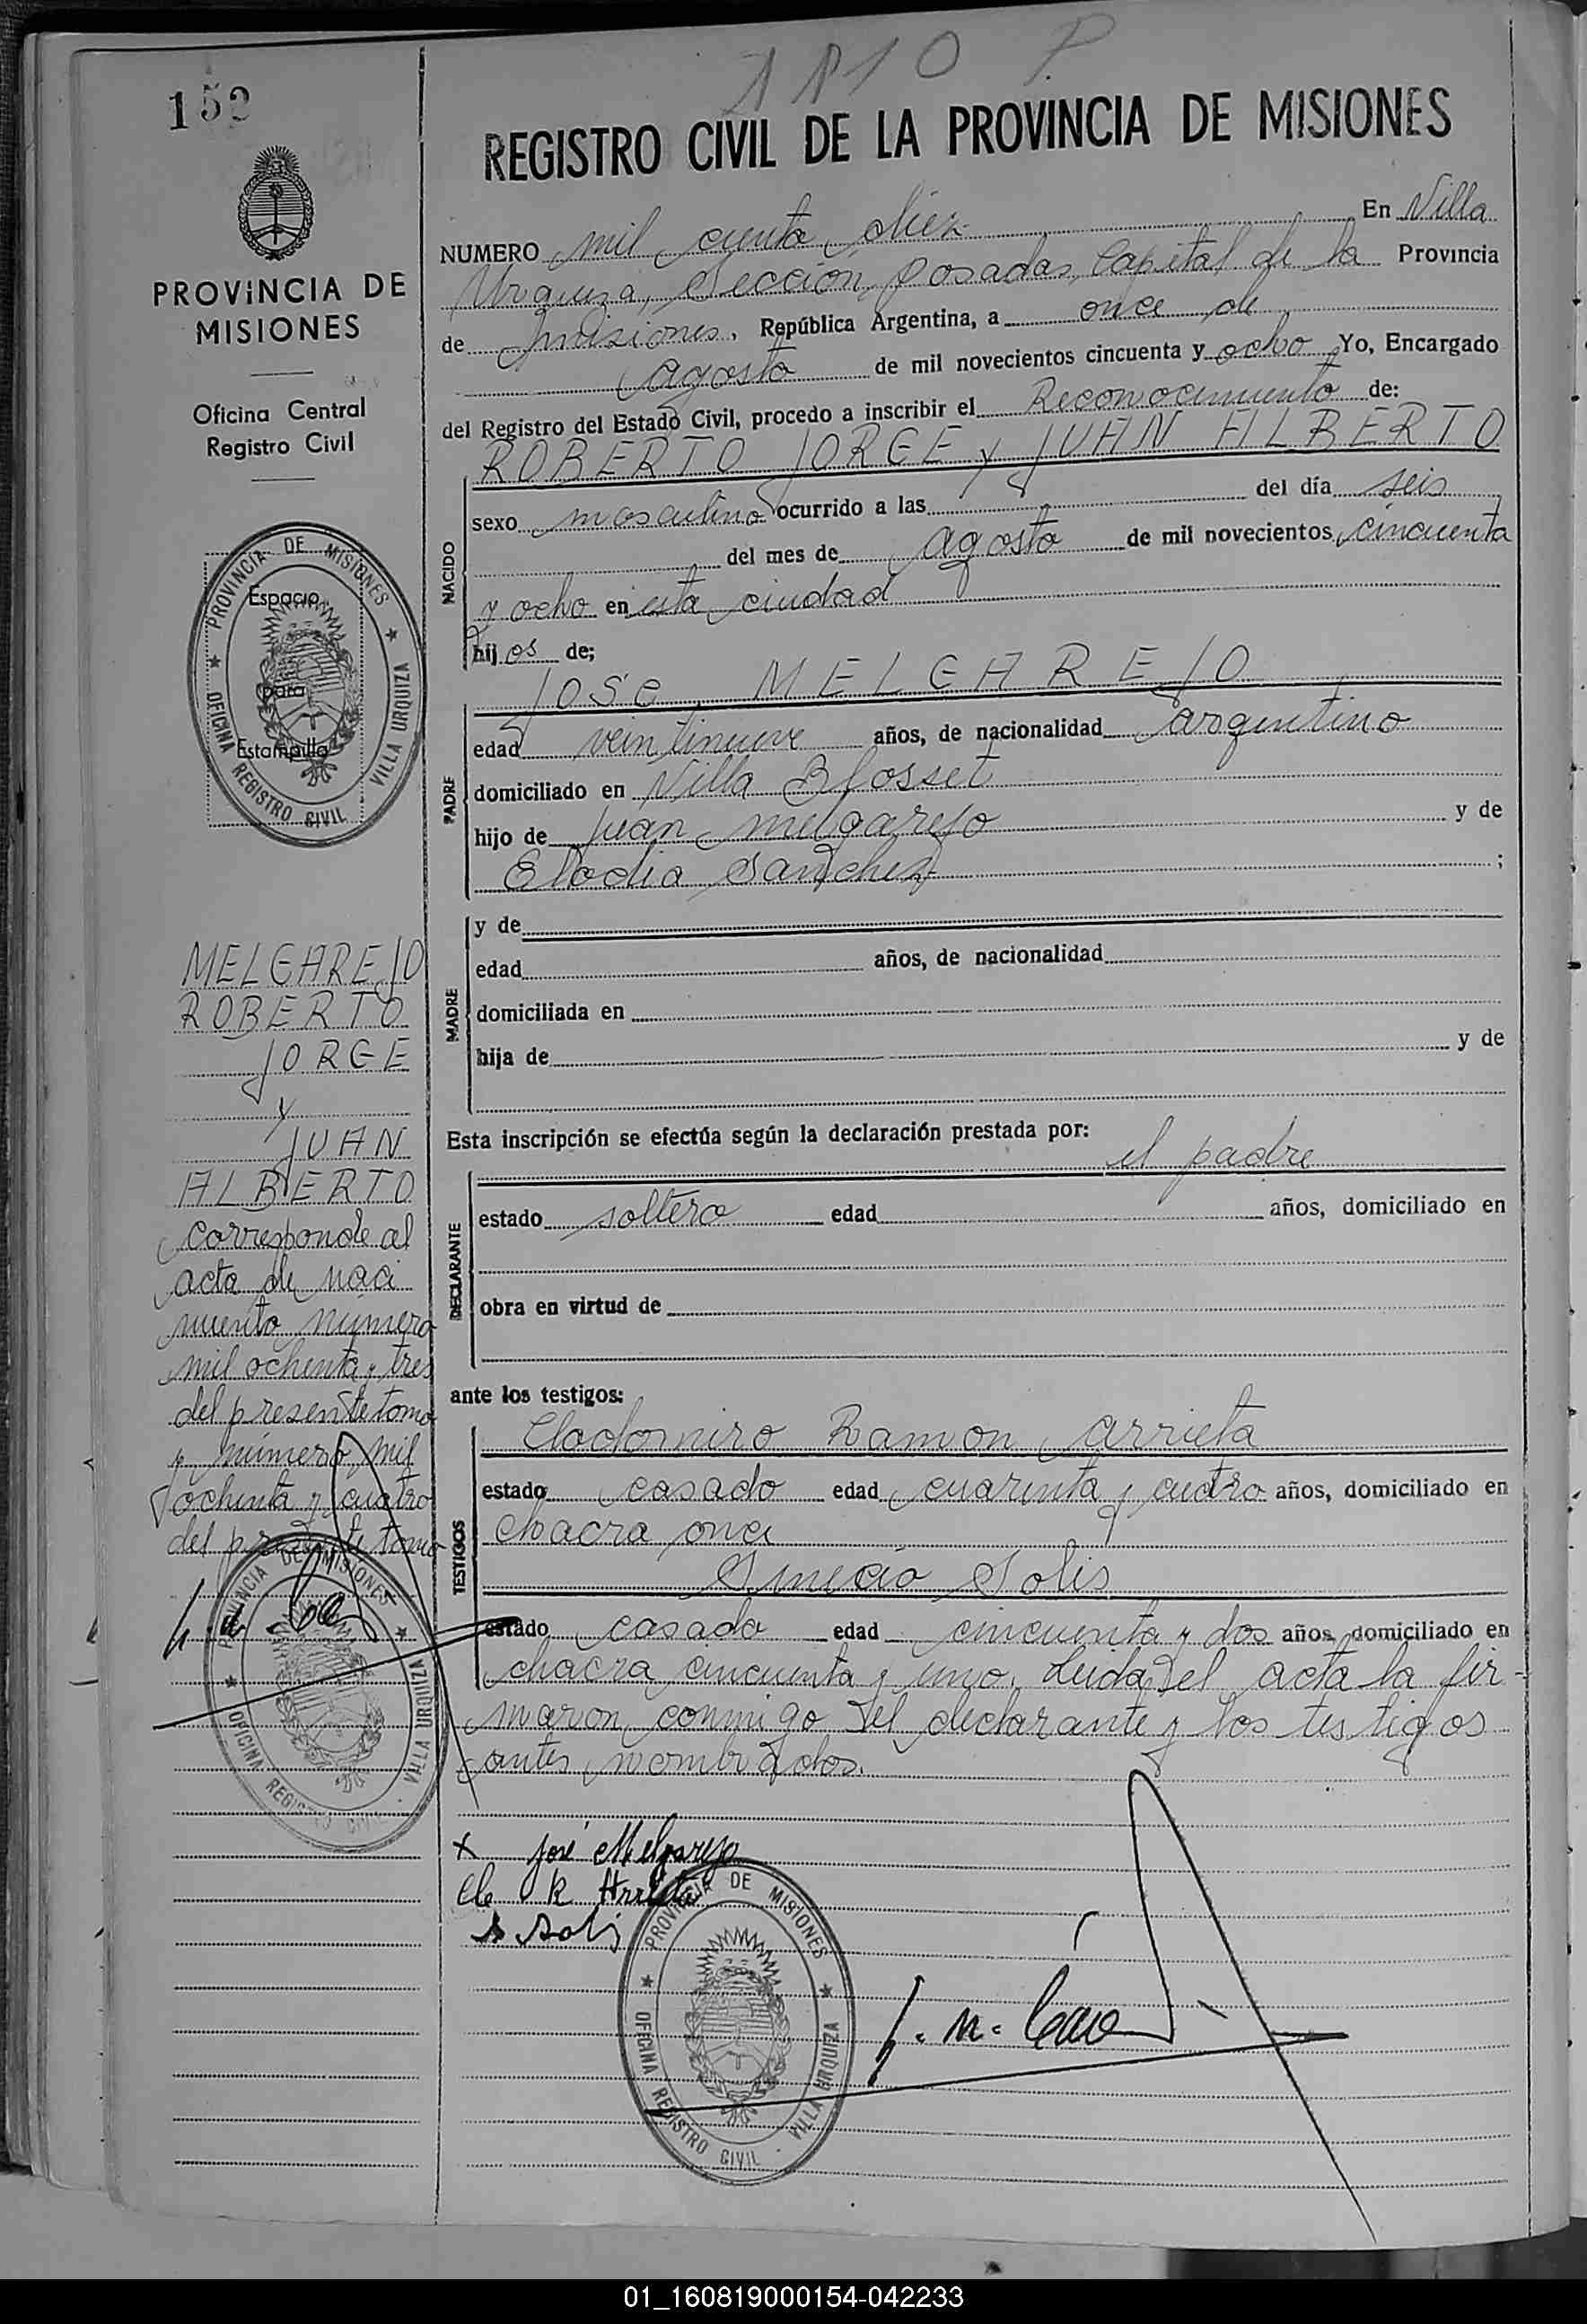 1110 P
152
REGISTRO CIVIL DE LA PROVINCIA DE MISIONES
PROVINCIA DE
MISIONES
Oficina Central
Registro Civil
PROVINCIA DE MISIONES
OFICINA REGISTRO CIVIL - VILLA URQUIZA
Espacio
para
Estampilla
MELGAREJO
ROBERTO
JORGE
y
JUAN
ALBERTO
Corresponde al
acta de naci
miento número
mil ochenta y tres
del presente tomo
y número mil
ochenta y cuatro
del presente tomo
PROVINCIA DE MISIONES
OFICINA REGISTRO CIVIL - VILLA URQUIZA
NUMERO mil ciento diez En Villa
Urquiza, Sección Posadas, Capital de la Provincia
de Misiones, República Argentina, a once de
agosto de mil novecientos cincuenta y ocho Yo, Encargado
del Registro del Estado Civil, procedo a inscribir el Reconocimiento de:
ROBERTO JORGE y JUAN ALBERTO
NACIDO
sexo masculino ocurrido a las del día seis
del mes de agosto de mil novecientos cincuenta
y ocho en esta ciudad
hijos de;
José MELGAREJO
PADRE
edad veintinueve años, de nacionalidad argentino
domiciliado en Villa Blosset
hijo de Juan Melgarejo y de
Elodia Sanchez ;
MADRE
y de
edad años, de nacionalidad
domiciliada en
hija de y de
Esta inscripción se efectúa según la declaración prestada por:
el padre
DECLARANTE
estado soltero edad años, domiciliado en
obra en virtud de
ante los testigos:
TESTIGOS
Clodomiro Ramon Arrieta
estado casado edad cuarenta y cuatro años, domiciliado en
chacra once
Solis
estado casado edad cincuenta y dos años, domiciliado en
chacra cincuenta y uno. Leida el acta la fir-
maron conmigo el declarante y los testigos
antes nombrados.
x José Melgarejo
Clo R Arrieta
Solis
PROVINCIA DE MISIONES
OFICINA REGISTRO CIVIL - VILLA URQUIZA
01_160819000154-042233